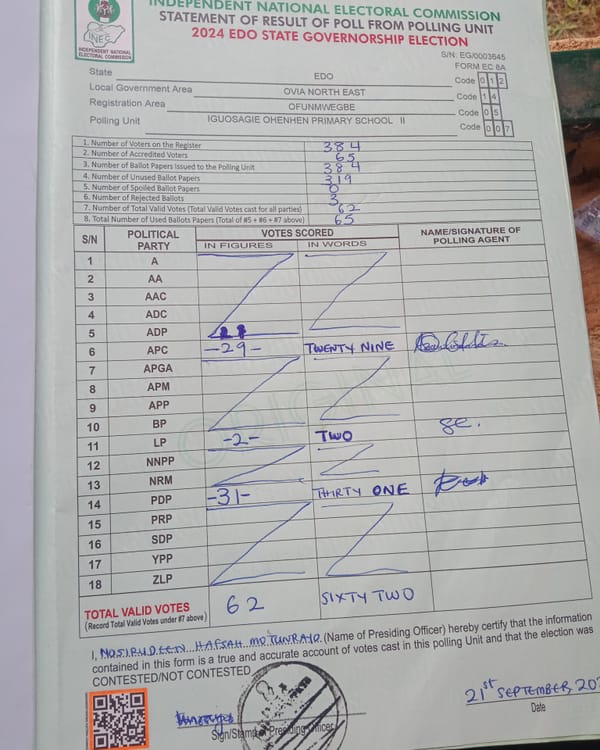 INDEPENDENT NATIONAL ELECTORAL COMMISSION
STATEMENT OF RESULT OF POLL FROM POLLING UNIT
2024 EDO STATE GOVERNORSHIP ELECTION
INEC
INDEPENDENT NATIONAL
ELECTORAL COMMISSION
S/N: EG/0003645
FORM EC 8A
State EDO Code 0 1 2
Local Government Area OVIA NORTH EAST Code 1 4
Registration Area OFUNMWEGBE Code 0 5
Polling Unit IGUOSAGIE OHENHEN PRIMARY SCHOOL II Code 0 0 7
1. Number of Voters on the Register 384
2. Number of Accredited Voters 65
3. Number of Ballot Papers Issued to the Polling Unit 384
4. Number of Unused Ballot Papers 319
5. Number of Spoiled Ballot Papers 0
6. Number of Rejected Ballots 3
7. Number of Total Valid Votes (Total Valid Votes cast for all parties) 62
8. Total Number of Used Ballots Papers (Total of #5 + #6 + #7 above) 65
S/N POLITICAL PARTY VOTES SCORED NAME/SIGNATURE OF POLLING AGENT
IN FIGURES IN WORDS
1 A
2 AA
3 AAC
4 ADC
5 ADP
6 APC -29- TWENTY NINE
7 APGA
8 APM
9 APP
10 BP
11 LP -2- TWO
12 NNPP
13 NRM
14 PDP -31- THIRTY ONE
15 PRP
16 SDP
17 YPP
18 ZLP
TOTAL VALID VOTES 62 SIXTY TWO
(Record Total Valid Votes under #7 above)
I, NOSIRUDEEN HAFSAH MOTUNRAYO (Name of Presiding Officer) hereby certify that the information
contained in this form is a true and accurate account of votes cast in this polling Unit and that the election was
CONTESTED/NOT CONTESTED
21st SEPTEMBER 20
Sign/Stamp of Presiding Officer
Date